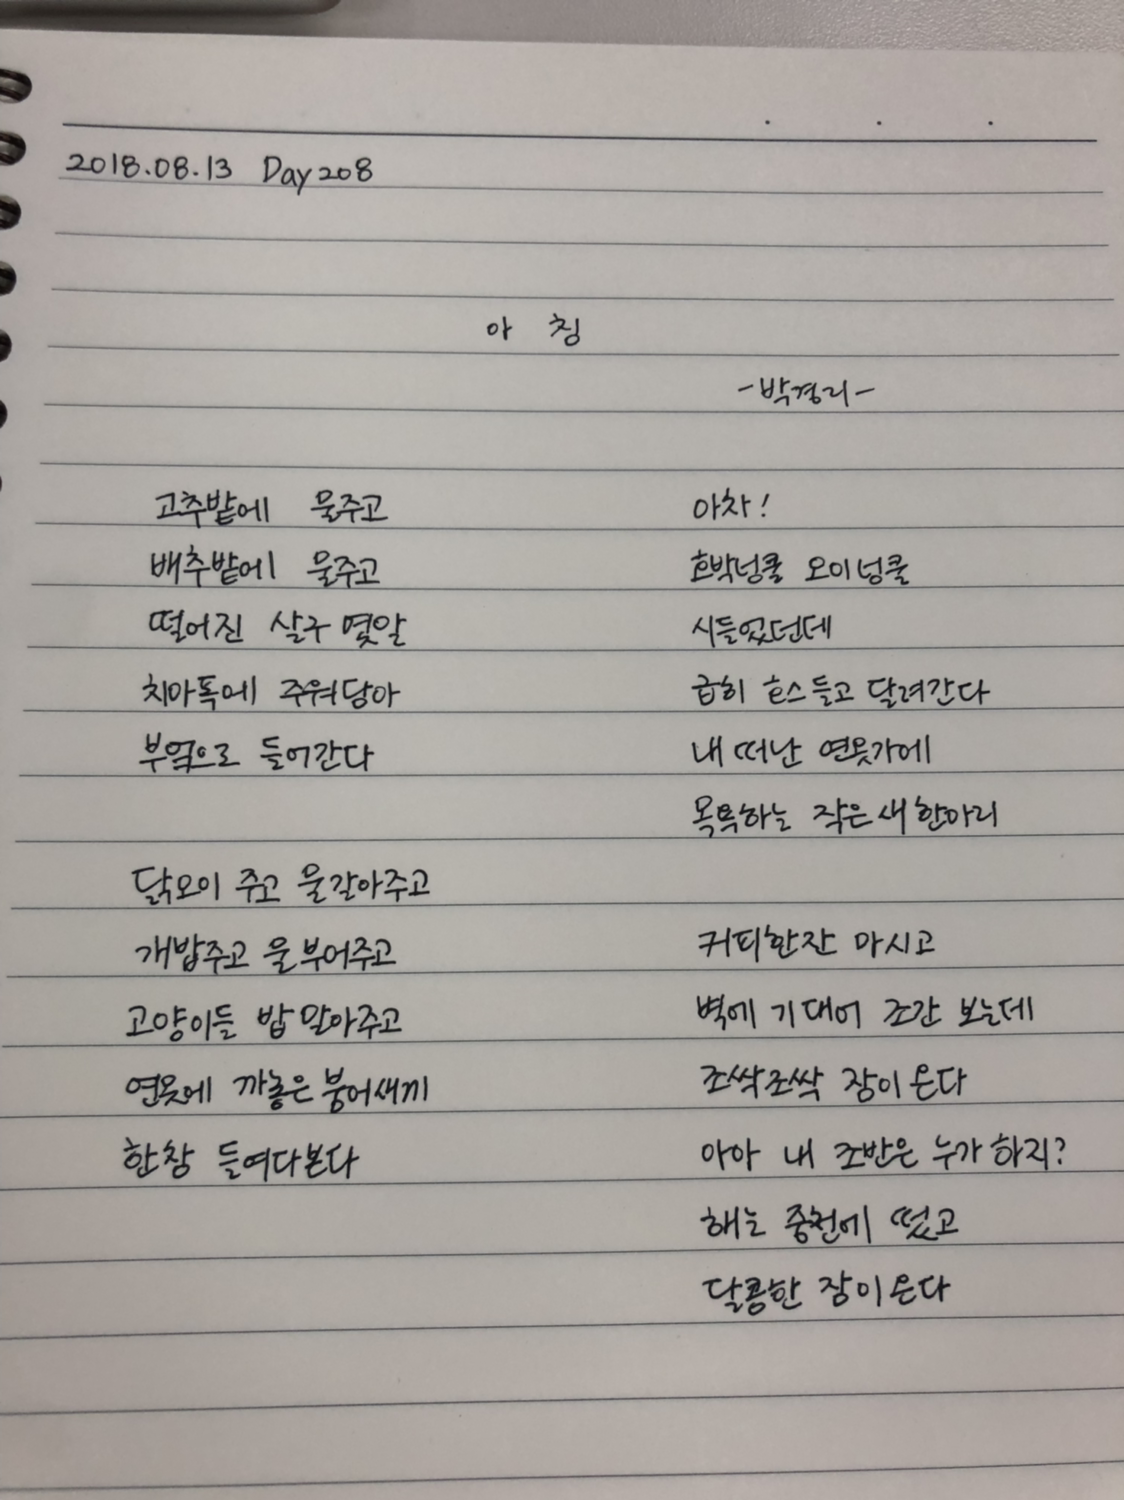 2018.08.13 Day208
아 침
-박경리-
고추밭에 물주고
배추밭에 물주고
떨어진 살구 몇알
치마폭에 주워담아
부엌으로 들어간다
닭모이 주고 물갈아주고
개밥주고 물부어주고
고양이들 밥 말아주고
연못에 까놓은 붕어새끼
한창 들여다본다
아차!
호박넝쿨 오이넝쿨
시들었던데
급히 호스 들고 달려간다
내 떠난 연못가에
목욕하는 작은새 한마리
커피한잔 마시고
벽에 기대어 조간 보는데
조싹조싹 잠이 온다
아아 내 조반은 누가 하지?
해는 중천에 떴고
달콤한 잠이 온다